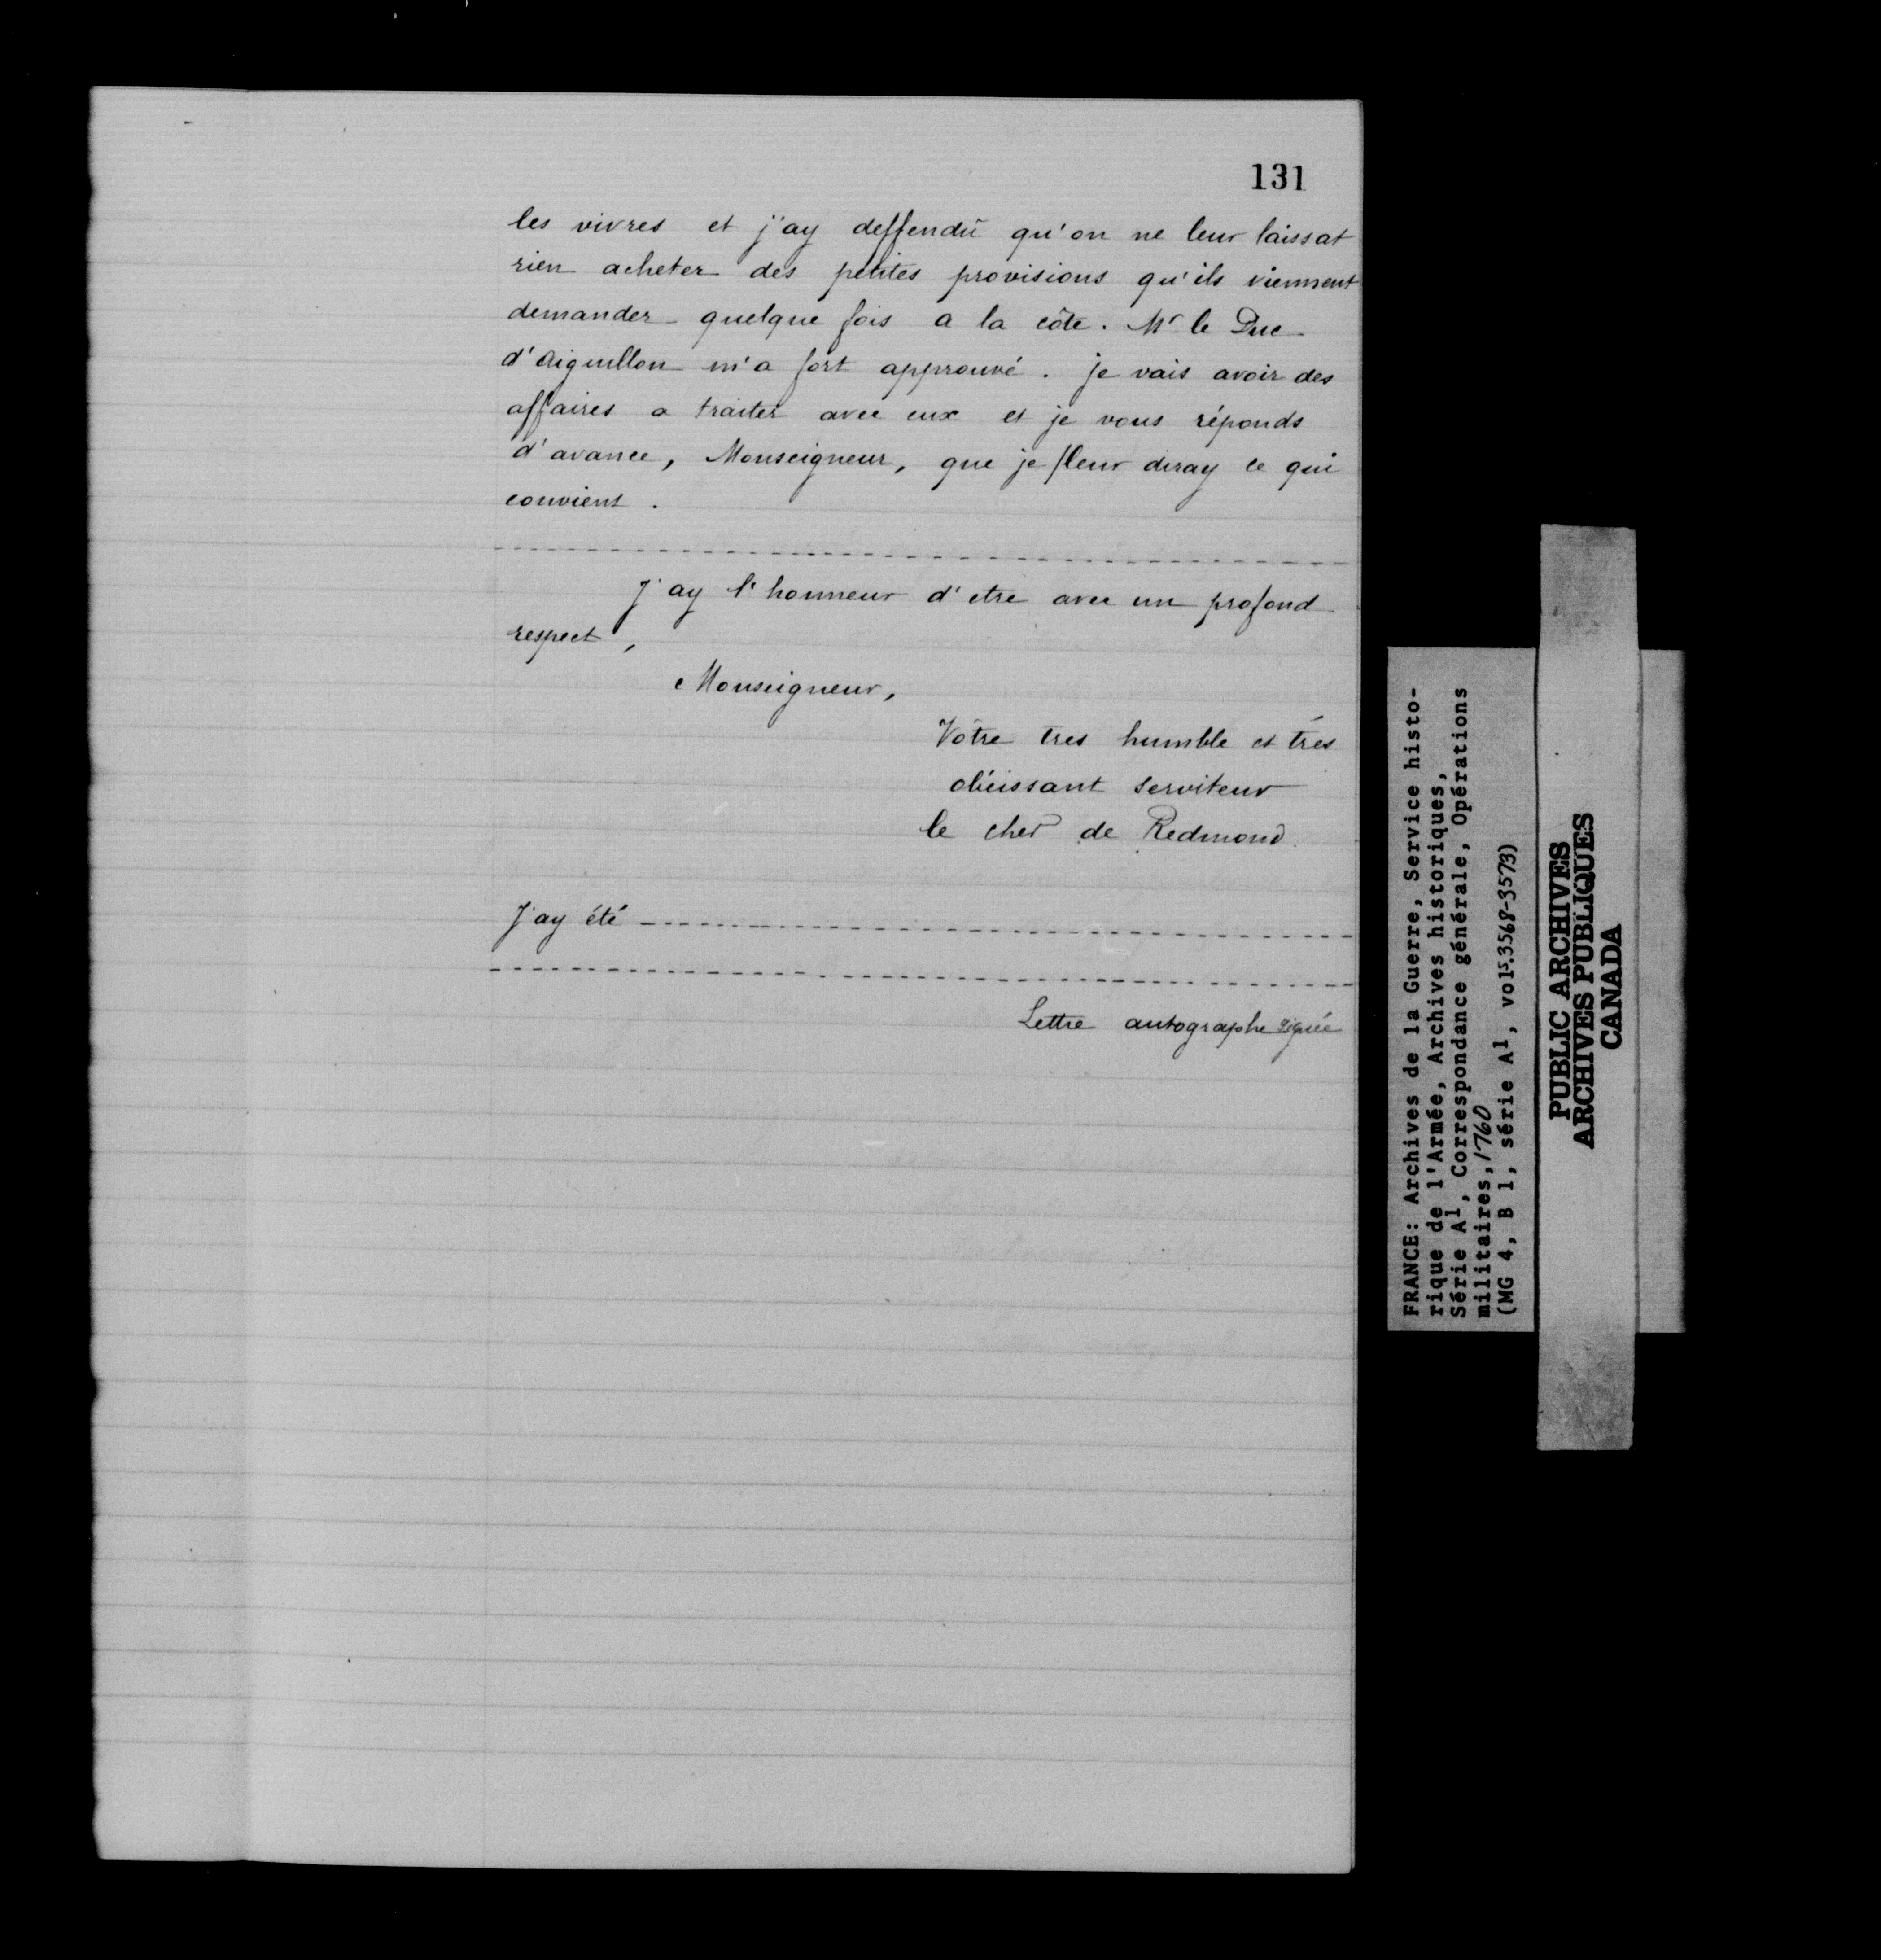 131
les vivres et j'ay deffendu qu'on ne leur laissat
rien acheter des petites provisions qu'ils viennent
demander quelque fois a la côte. Mr le Duc
d'Aiguillon m'a fort approuvé. je vais avoir des
affaires a traiter avec eux et je vous réponds
d'avance, Monseigneur, que je leur diray ce qui
convient.
J'ay l'honneur d'etre avec un profond
respect,
Monseigneur,
Vôtre tres humble et trés
obéissant serviteur
le cher de Redmond.
J'ay été
Lettre autographe signée
FRANCE: Archives de la Guerre, Service histo-
rique de l'Armée, Archives historiques,
Série A1, Correspondance générale, Opérations
militaires, 1760
(MG 4, B 1, série A1, vols.3568-3573)
PUBLIC ARCHIVES
ARCHIVES PUBLIQUES
CANADA